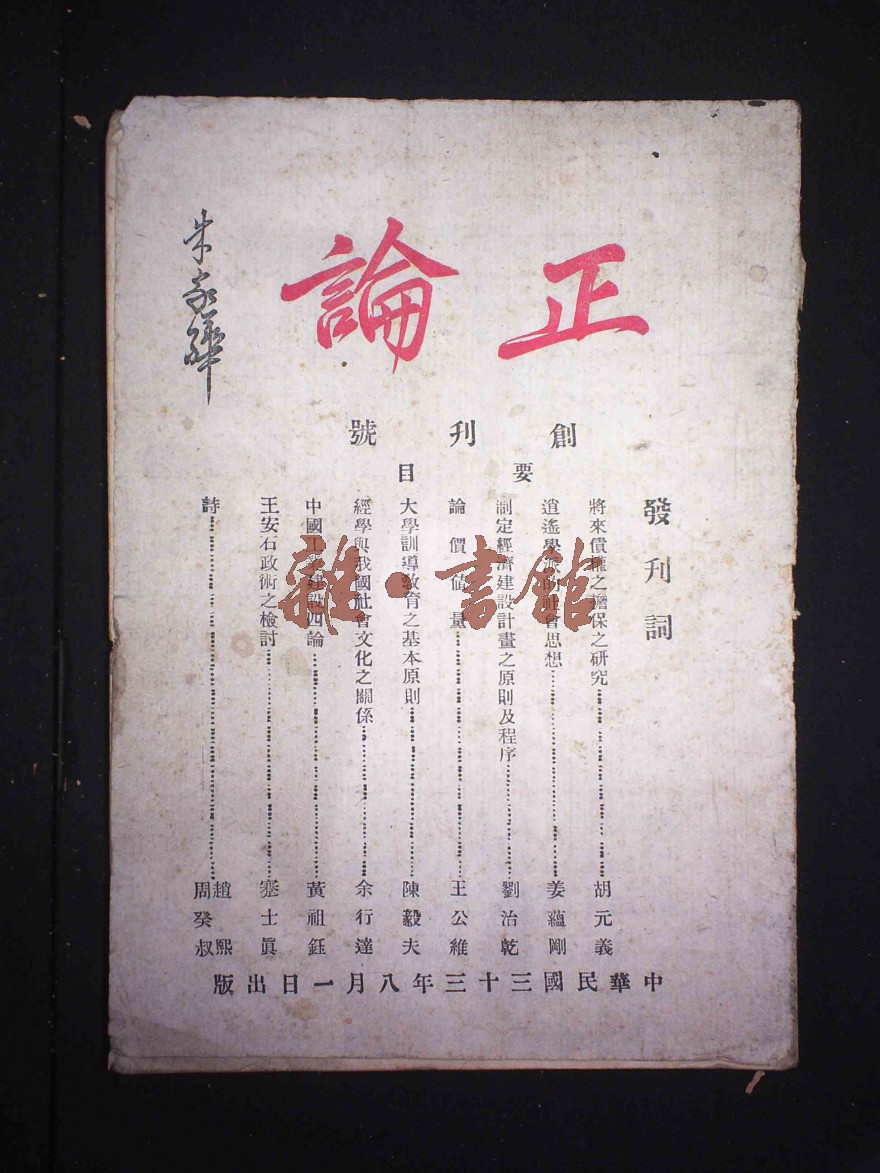 正論
朱家驊
創刊號
要目
發刊詞
將來債權之擔保之研究 胡元義
逍遙學派的社會思想 姜蘊剛
制定經濟建設計畫之原則及程序 劉治乾
論價值量 王公維
大學訓導教育之基本原則 陳毅夫
經學與我國社會文化之關係 余行達
中國工業建設四論 黃祖鈺
王安石政術之檢討 蹇士眞
詩 趙熙 周癸叔
中華民國三十三年八月一日出版
雜·書館